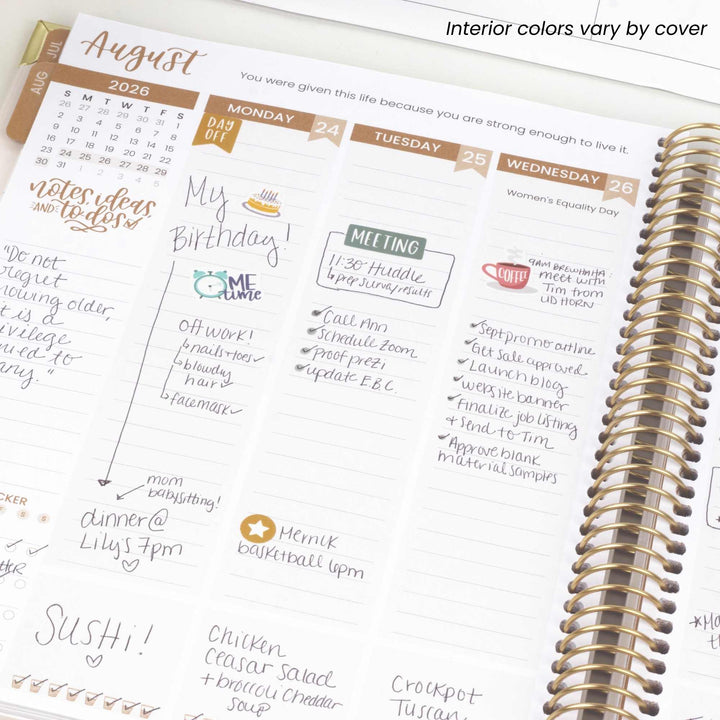 Interior colors vary by cover
JUL
AUG
August
You were given this life because you are strong enough to live it.
2026
S M T W T F S
26 27 28 29 30 31 1
2 3 4 5 6 7 8
9 10 11 12 13 14 15
16 17 18 19 20 21 22
23 24 25 26 27 28 29
30 31 1 2 3 4 5
notes, ideas,
AND to-dos
"Do not
regret
growing older,
it is a
privilege
denied to
many."
MONDAY 24
DAY
OFF
My
Birthday!
ME
time
Off work!
nails + toes
blowdry
hair
facemask
mom
babysitting!
dinner @
Lily's 7pm
SUSHI!
TUESDAY 25
MEETING
11:30 Huddle
prep survey results
Call Ann
Schedule Zoom
Proof prezi
update E.B.C.
Merrick
basketball 6pm
Chicken
Ceasar Salad
+ broccoli Cheddar
soup
WEDNESDAY 26
Women's Equality Day
COFFEE
9AM BREWHAHA:
meet with
Tim from
UD HORN
Sept promo outline
Get sale approved
Launch blog
website banner
Finalize job listing
& send to Tim
Approve blank
material samples
Crockpot
Tuscan